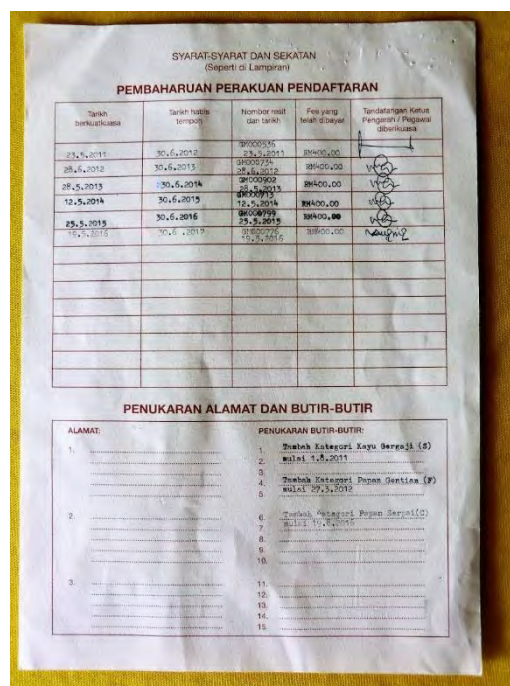 SYARAT-SYARAT DAN SEKATAN
(Seperti di Lampiran)
PEMBAHARUAN PERAKUAN PENDAFTARAN
Tarikh berkuatkuasa Tarikh habis tempoh Nombor resit dan tarikh Fee yang telah dibayar Tandatangan Ketua Pengarah / Pegawai diberikuasa
23.5.2011 30.6.2012 GM000536 23.5.2011 RM400.00
28.6.2012 30.6.2013 GM000734 28.6.2012 RM400.00
28.5.2013 30.6.2014 GM000902 28.5.2013 RM400.00
12.5.2014 30.6.2015 GM000713 12.5.2014 RM400.00
25.5.2015 30.6.2016 GM000799 25.5.2015 RM400.00
19.5.2016 30.6.2017 GM000776 19.5.2016 RM400.00
PENUKARAN ALAMAT DAN BUTIR-BUTIR
ALAMAT: PENUKARAN BUTIR-BUTIR:
1. 1. Tambah Kategori Kayu Gergaji (S)
2. mulai 1.8.2011
3.
4. Tambah Kategori Papan Gentian (F)
5. mulai 27.3.2012
2. 6. Tambah Kategori Papan Serpai(C)
7. mulai 19.8.2016
8.
9.
10.
3. 11.
12.
13.
14.
15.